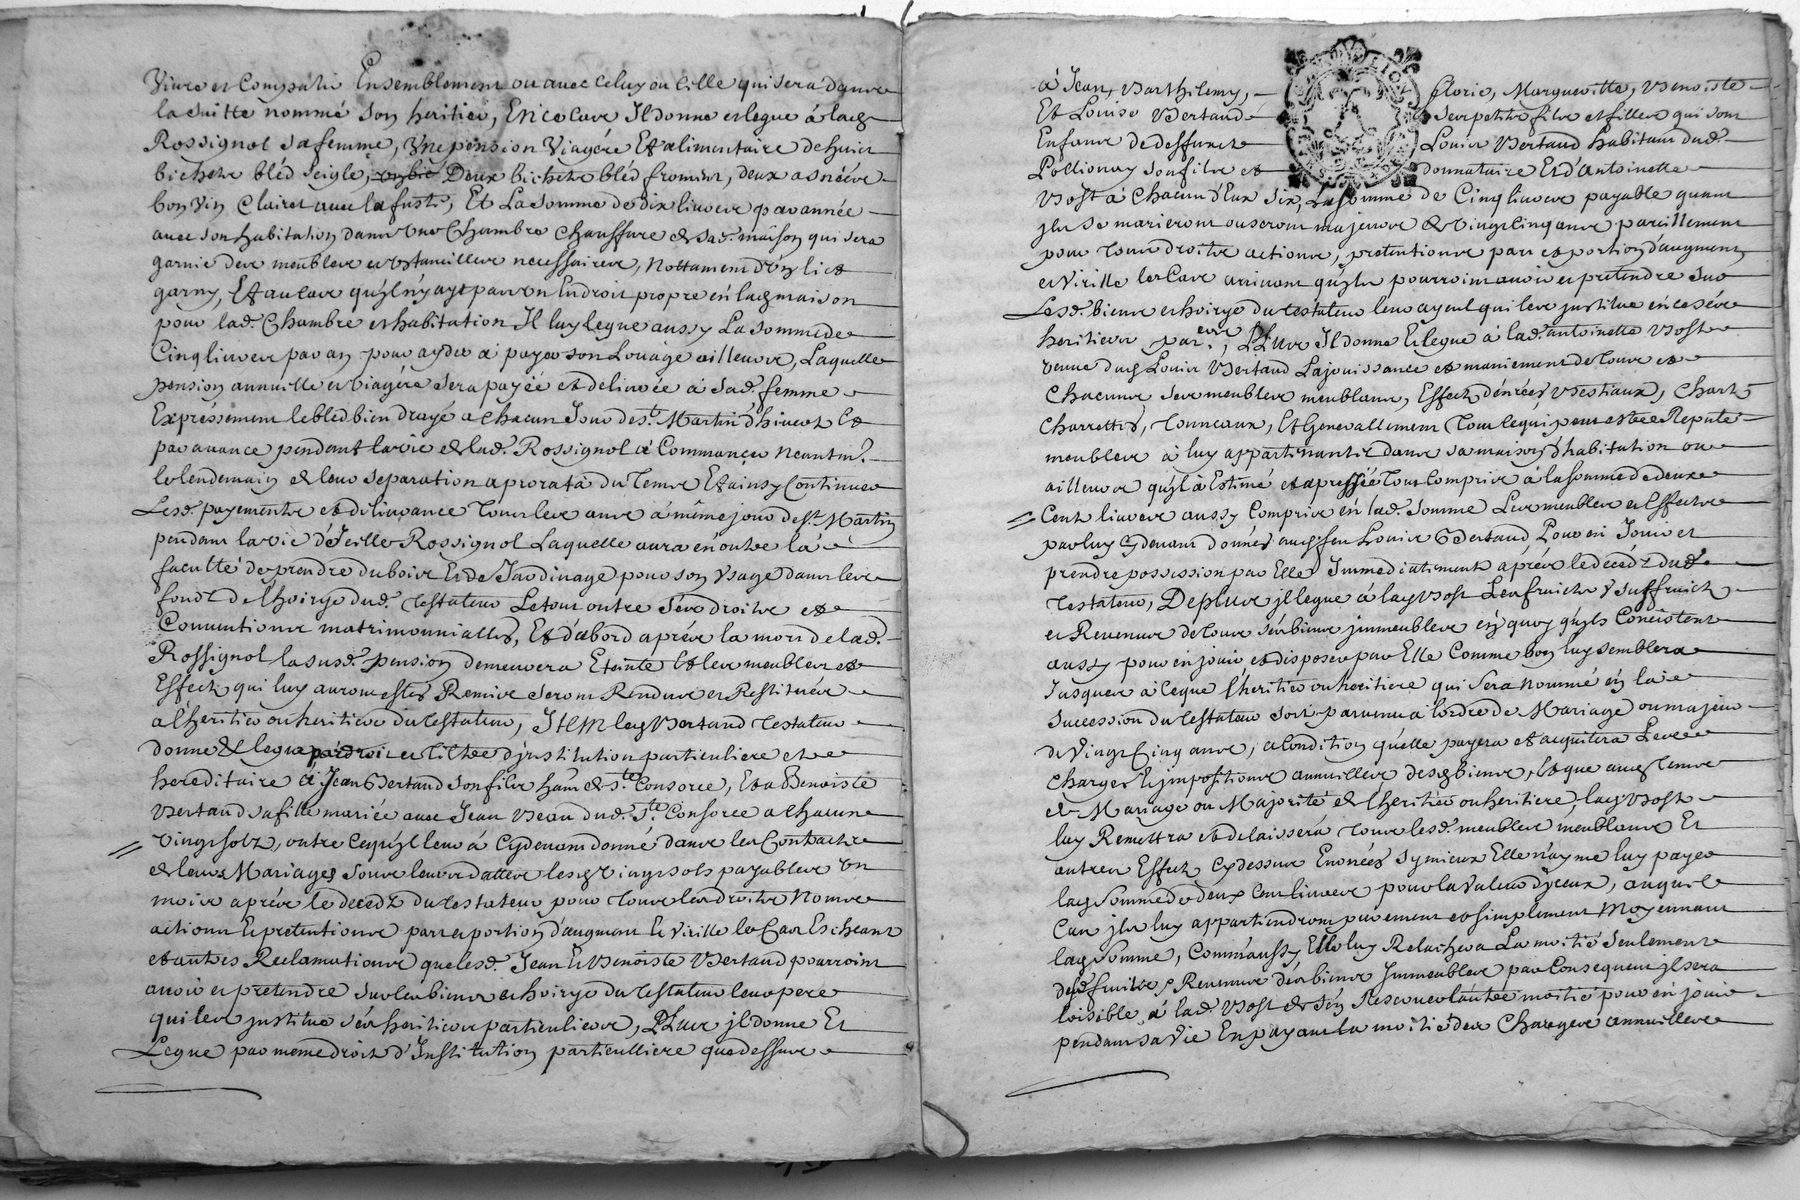 Vivre et Compatir Ensemblement ou avec celuy ou celle qui sera dans
la suitte nommé son heritier, En ce Cas Il donne et legue á lad.
Rossignol sa femme, Une pension Viagére Et alimentaire de huit
bichets bléd seigle, Deux bichets bléd froment, deux asnéés
bon vin Clairet avec la fuste, Et La somme de dix livres par année
avec son habitation dans Une Chambre Chauffure de sad. maison qui sera
garnie des meubles et ustancilles necessaires, nottament d'un lict
garny, Et au Cas qu'il n'y ayt pas un Endroit propre en lad. maison
pour lad. Chambre et habitation Il luy legue aussy La somme de
Cinq livres par an pour ayder a payer son Louäge ailleurs, Laquelle
pension annuelle et viagére sera payéé et delivréé á sad. femme
Expressement le bled bien drayé a chacun Jour de st. Martin d'hivert Et
par avance pendant la vie de lad. Rossignol á Commancer neantm.
le lendemain de leur separation a prorata du tems Et ainsy Continuer
Lesd. payements et delivrance tous les ans á même jour de st. Martin
pendant la vie d'Jcelle Rossignol Laquelle aura en outre la
faculté de prendre du bois Et de Jardinage pour son Usage dans les
fondz de l'hoirye dud. testateur Le tout outre ses droits et
Conventions matrimonnialles, Et d'abord aprés la mort de lad.
Rossignol la susd. pension demeurera Eteinte Et les meubles et
Effects qui luy auront estés Remis seront Rendus et Restitués
a l'heritier ou heritiere du testateur, Item led. Bertaud testateur
donne et legue par droit et tiltre d'institution particuliere et
hereditaire á Jean Bertaud son fils hant de ste. Consorce, Et a Benoiste
Bertaud sa fille mariéé avec Jean Veau dud. Ste. Consorce a chacun
Vingt solz, outre Ce qu'il leur á Cydevant donné dans les Contracts
de leurs Mariages sous leurs dattes lesd. Vingt sols payables Un
mois aprés le decedz du testateur pour tous les droits Noms
actions Et pretentions part et portion d'augment Et Virille le Cas Escheant
et autres Reclamations que lesd. Jean Et Benoiste Bertaud pourroint
avoir et pretendre sur les biens et hoirye du testateur leur pere
qui les jnstitue ses heritiers particuliers, Plus jl donne Et
Legue par meme droit d'Institution particulliere que dessus
á Jean, Barthelemy, Florie, Margueritte, Benoiste
Et Louise Bertaud ses petits fils et filles qui sont
Enfans de deffunct Louis Bertaud habitant dud.
Pollionay son fils et donnataire Et d'antoinette
Bost á Chacun d'Eux six, La somme de Cinq livres payable quant
jls se marieront ou seront majeurs de vingt cinq ans pareillement
pour tous droits actions, pretentions part et portion d'augment
et Virille les Cas arrivant qu'ils pourroint avoir et pretendre sur
Lesd. biens et hoirye du testateur leur ayeul qui les jnstitue en ce ses
heritiers par.ers, Plus Il donne Et legue á lad. antoinette Bost
veuve dud. Louis Bertaud La jouissance et maniement de tous et
Chacuns ses meubles meublans, Effects denréés Bestiaux, Charts
Charrettes, tonneaux, Et Generallement tout le qui peut estre Reputé
meubles á luy appartinants dans sa maison d'habitation ou
ailleurs qu'il á Estimé et apressié tout Compris á la somme de deux
Cent livres aussy Compris en lad. somme Les meubles et Effects
par luy Cydevant donnés aud. feu Louis Bertaud, Pour en Jouir et
prendre possession par Elle Immediatement aprés le decedz dud.
testateur, De plus jl legue á lad. Bost Les fruicts Usuffruict
et Revenus de tous ses biens jmmeubles en quoy qu'ils Consistent
aussy pour en jouir et disposer par Elle Comme bon luy semblera
Jusques á ce que l'heritier ou heritiere qui sera nommé en la
succession du testateur soit parvenu a l'ordre de Mariage ou majeur
de Vingt Cinq ans, a Condition qu'elle payera et acquittera Les
Charges Et jmpositions annuelles desd. biens, Et que aud. tems
de Mariage ou Majorité de l'heritier ou heritiere, lad. Bost
luy Remettra et delaissera tous lesd. meubles meublans Et
autres Effects Cydessus Enoncés sy mieux Elle n'ayme luy payer
lad. somme de deux Cent livres pour la valeur d'jceux, auquel
Cas jls luy appartiendront purement et simplement Moyennant
lad. somme, Comm'aussy Elle luy Relachera La moitié seulement
desd. fruits Revenus des biens Immeubles par Consequent jl sera
loisible á lad. Bost de se Reserver l'autre moitié pour en jouir
pendant sa vie En payant la moitié des Charges annuelles